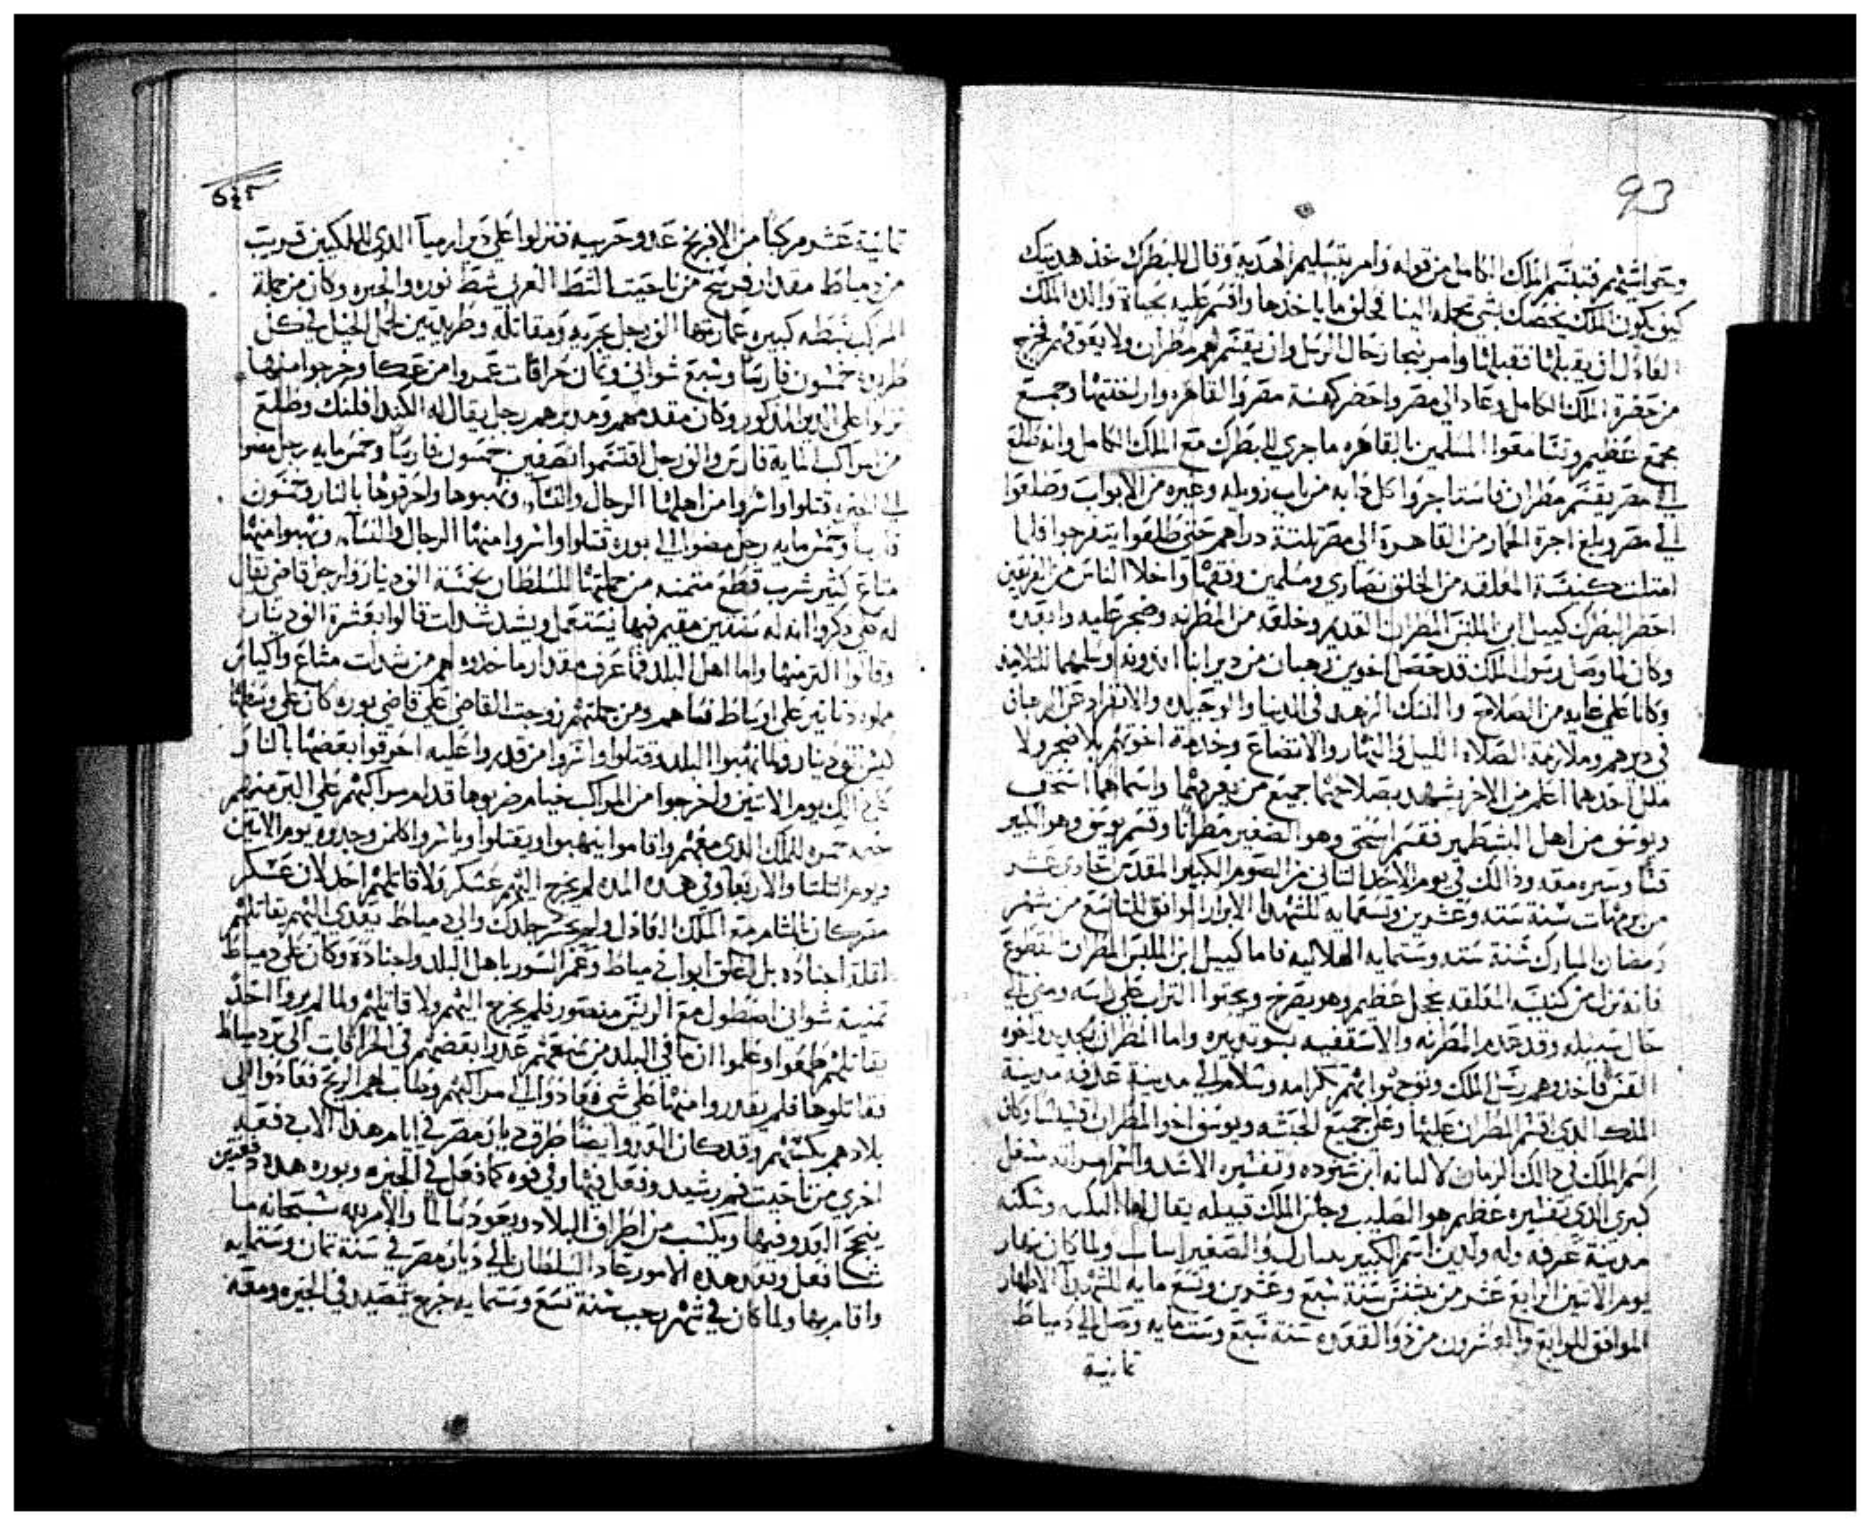 93
وحتى استتم فتبسم الملك الكامل من قوله وامر بتسليم الهديه وقال للبطرك خذ هديتك
كيف يكون الملك يخصك بشي تحمله الينا في خلق ما ياخذها واقسم عليه بحياة والدك الملك
العادل ان يقبلها فقبلها وامر بنجاز حال الرسل وان يقسم لهم مطران ولا يعوقهم فخرج
من حضرة الملك الكامل وعاد الى مصر واحضر كهنة مصر والقاهره واراخنتها وجمع
مجمع عظيم وتسامعوا المسلمين بالقاهره ما جري للبطرك مع الملك الكامل وانه طلع
الي مصر يقسم مطران فاستاجروا كل دابه من باب زويله وغيره من الابواب وطلعوا
الي مصر وبلغ اجرة الحمار من القاهرة الى مصر تلتة دراهم حتى طلعوا يتفرجوا فلما
امتلت كنيسة المعلقه من الخلق نصاري ومسلمين
احضر البطرك كييل ابن الملبس المطران القديم وخلعه من المطرنه وضجر عليه وابعده
وكان لما وصل رسول الملك قد حصل اخوين رهبان من دير
وكانا على غايه من الصلاح والنسك الزهد في الدنيا والوحيده والانفراد عن الرهبان
في ديرهم وملازمة الصلاه الليل والنهار والاتضاع وخدمة اخوتهم بلا ضجر ولا
ملل احدهما اعلم من الاخر يشهد بصلاحهما جميع من يعرفهما واسماهما اسحق
ويوسف من اهل فقسم اسحق وهو الصغير مطرانا وقسم يوسف وهو الكبير
قسا وسيره معه وذالك في يوم الاحد التاني من الصوم الكبير المقدس الحادي عشر
من برمهات سنة ستة وعشرين وتسعمايه للشهدا الابرار الموافق للتاسع من شهر
رمضان المبارك سنة سته وستمايه الهلاليه فاما كييل ابن الملبس المطران المقطوع
فانه نزل من كنيسه المعلقه بخجل عظيم وهو يصرخ ويحتوا التراب علي راسه ومضي الي
حال سبيله وقد عدم المطرنه والاسقفيه بسو تدبيره واما المطران الجديد واخوه
القس فاخذوهم رسل الملك وتوجهوا بهم بكرامه وسلام الي مدينة عدفه مدينة
الملك الذي قسم المطران عليها وعلي جميع الحبشه ويوسف اخو المطران قسيسا وكان
اسم الملك في ذالك الزمان لالبلا ابن شنوده وتفسيره الاسد واسم امراته مسقل
كبري الذي تفسيره عظيم هو الصليب وجنس الملك قبيله يقال لها البكيه وسكنه
مدينة عرفه وله ولدين اسم الكبير والصغير ولما كان نهار
يوم الاتنين الرابع عشر من بشنس سنة سبع وعشرين وتسع مايه للشهدا الاطهار
الموافق للرابع والعشرون من ذو القعده سنة سبع وستمايه وصل الي دمياط
تمانية
تمانية عشر مركبا من الافرنج عدو حربيه فنزلوا علي دير ارميا الذي للملكيين قريب
من دمياط مقدار فرسخ من ناحيت الشط الغربي شط بوره والجيزه وكان من جملة
المراكب بطسه كبيره عمارتها الف رجل بحريه ومقاتله وطريدتين لحمل الخيل في كل
طريده خمسون فارسا وسبع شواني وتمان حراقات عمروا من عكا وخرجوا منها
نزلوا على الدير المذكور وكان مقدمهم ومدبرهم رجل يقال له الكند افلنك وطلع
من المراكب الماية فارس والف رجل اقتسموا نصفين خمسون فارسا وخمسمايه رجل مضوا
الي الجيزه قتلوا واسروا من اهلها الرجال والنسا ونهبوها واحرقوها بالنار وخمسون
فارسا وخمسمايه رجل مضوا الي بوره قتلوا واسروا منها الرجال والنسا ونهبوا منها
متاع كتير شرب قطع متمنه من جملتها للسلطان بخمسة الف دينار وا رجل قاضي يقال
له دكروا انه له سنتين مقيم فيها يستعمل ويشد شدات قالوا بعشرة الف دينار
وقالوا اكتر منها واما اهل البلد فما عرف مقدار ما خدوه لهم من شدات متاع واكياس
مملوه دنانير علي اوساط نساهم ومن جملتهم زوجت القاضي علي قاضي بوره كان علي وسطها
كيس الف دينار ولما نهبوا البلد وقتلوا واسروا من قدروا عليه احرقوا بعضها بالنار
ذالك يوم الاتنين واخرجوا من المراكب خيام وضربوها قدام مراكبهم علي البر منهم
خيمه حمره للملك الذي معهم واقاموا ينهبوا ويقتلوا وياسروا كلمن وجدوه يوم الاتنين
ويوم التلتا والاربعا وفي هذه المده لم يخرج اليهم عسكر ولا قاتلهم احد لان عسكر
مصر كان بالشام مع الملك العادل ولم يجسر جلدك والي دمياط يعدي اليهم يقاتلهم
لقلة اجناده بل اغلق ابواب دمياط وعمر السور باهل البلد واجناده وكان علي دمياط
تمنية شواني اصطول مع الريس منصور فلم يخرج اليهم ولا قاتلهم ولما لم يروا احد
يقاتلهم طمعوا وعلموا ان ما في البلد من يمنعهم عدوا بعضهم في الحراقات الي بر دمياط
فقاتلوها فلم يقدروا منها علي شي فعادوا الي مراكبهم وطاب لهم الريح فعادوا الي
بلادهم بكسبهم وقد كان العدو ايضا طرق ديار مصر في ايام هذا الاب دفعه
اخري من ناحيت فم رشيد وفعل فيها وفي فوه كما فعل في الجيزه وبوره هده دفعتين
ينجح العدو فيها ويكسب من اطراف البلاد ويعود سالما والامر لله سبحانه ما
شا فعل وبعد هده الامور عاد السلطان الي ديار مصر في سنة تمان وستمايه
واقام بها ولما كان في شهر رجب سنة تسع وستمايه خرج يتصيد في الجيزه ومعه